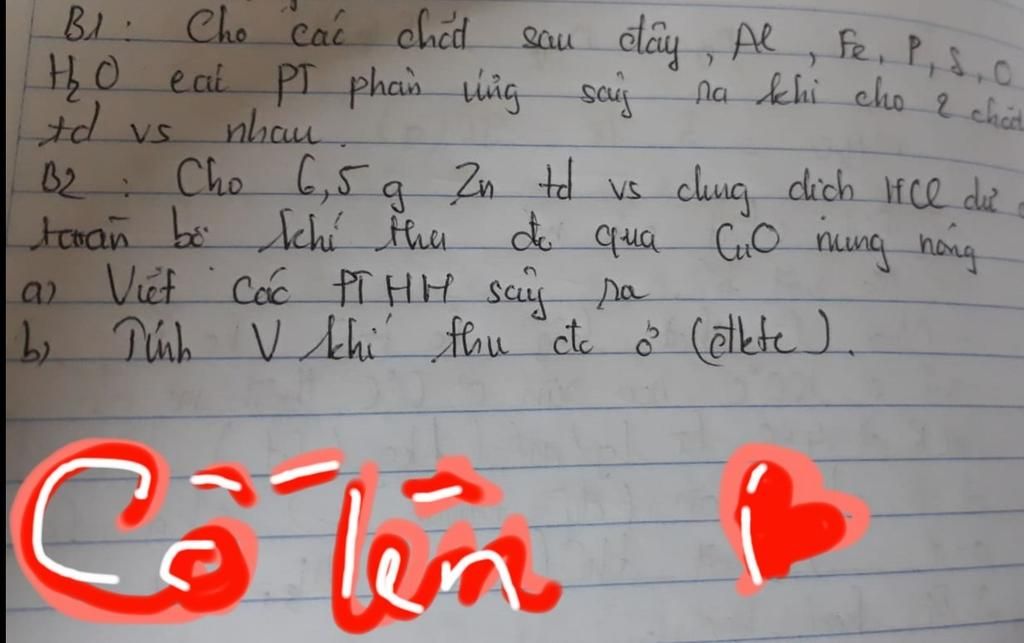 B1: Cho các chất sau đây, Al, Fe, P, S, O
H₂O các PT phản ứng sảy ra khi cho 2 chất
td vs nhau.
B2: Cho 6,5 g Zn td vs dung dịch HCl dư
toàn bộ khí thu đc qua CuO nung nóng
a) Viết các PTHH sảy ra
b) Tính V khí thu đc ở (đktc).
Cố lên